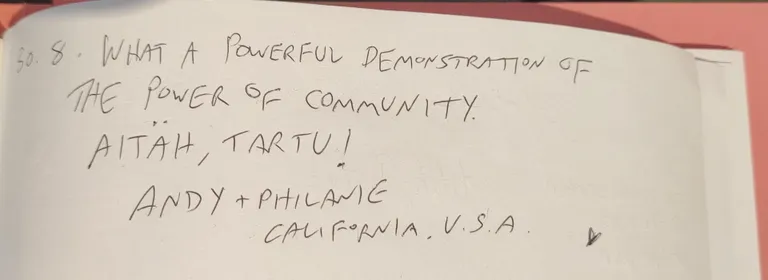 30.8. WHAT A POWERFUL DEMONSTRATION OF
THE POWER OF COMMUNITY.
AITÄH, TARTU!
ANDY + PHILANIE
CALIFORNIA, U.S.A.